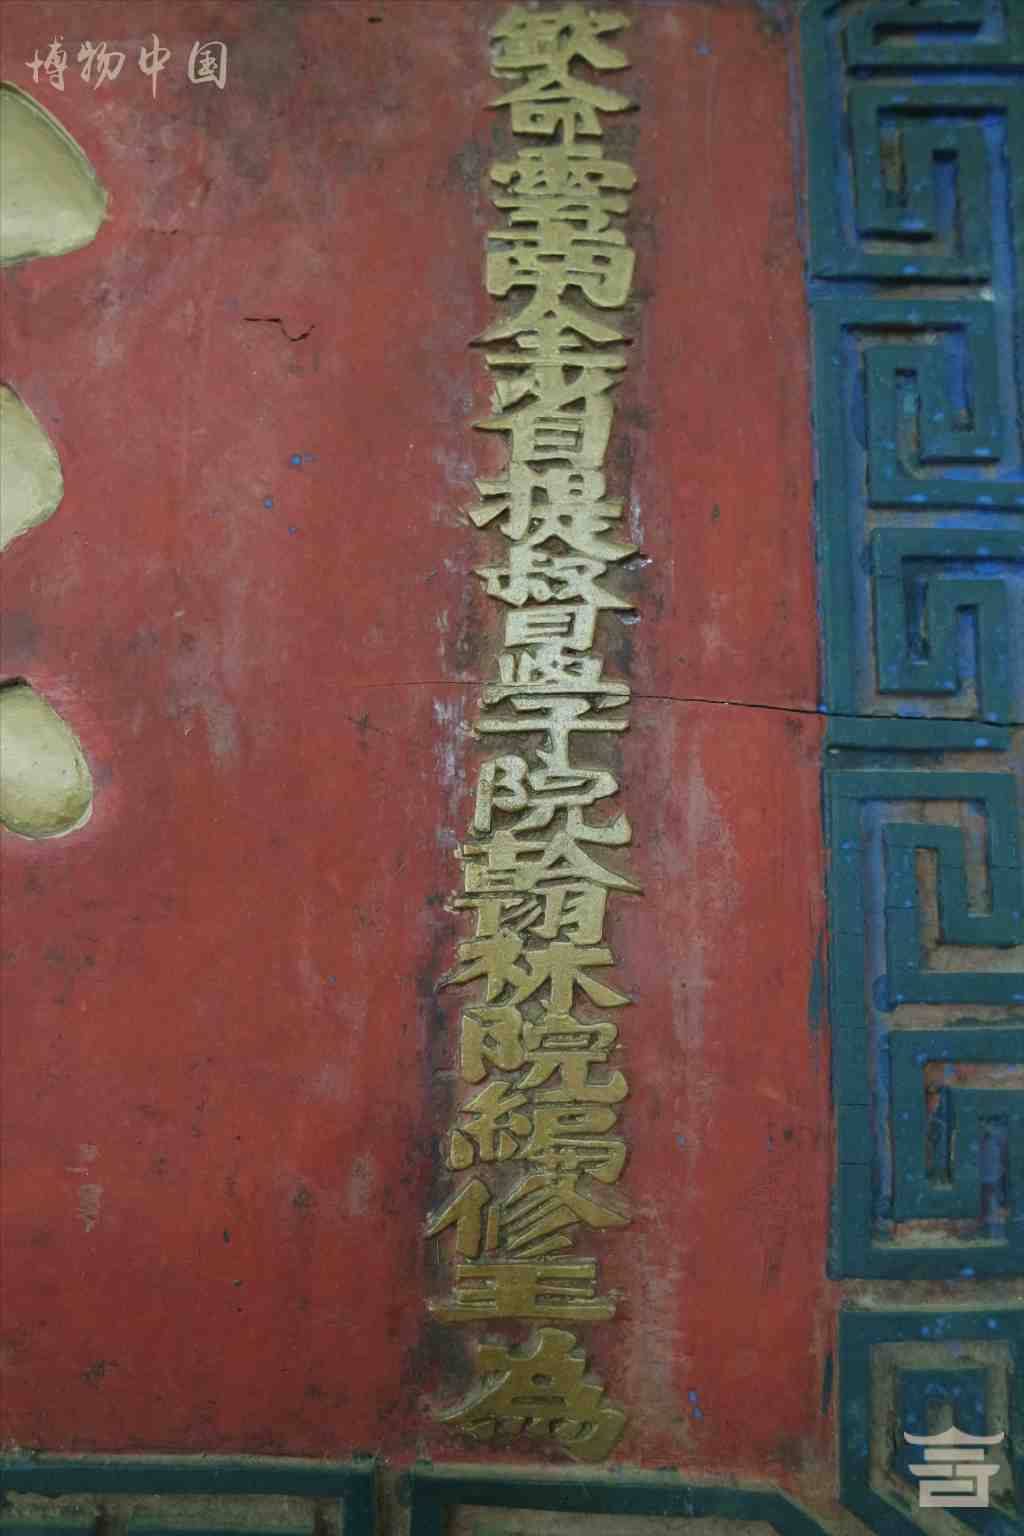 博物中国
欽命雲南全省提督學院翰林院編修王為